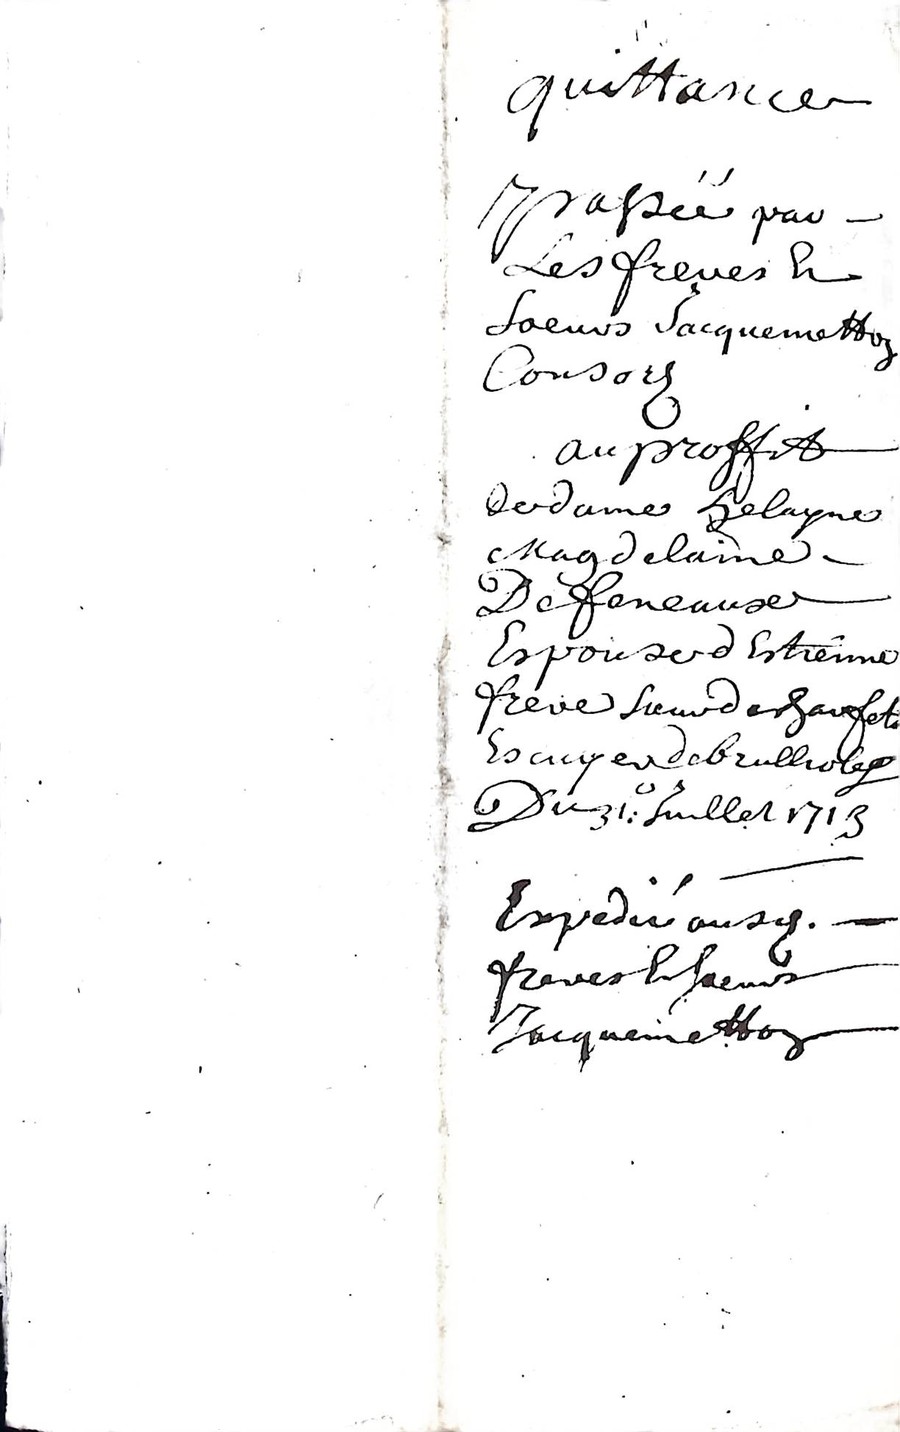 quittance
passée par
Les freres Et
soeurs Jacquemettoz
Consorz
au proffit
de dame Helayne
Magdelaine
Defeneause
Espouse d Estienne
frere sieur de
Escuyer de
Du 31.e Juillet 1713
Expedié ausd.
freres Et soeurs
Jacquemettoz